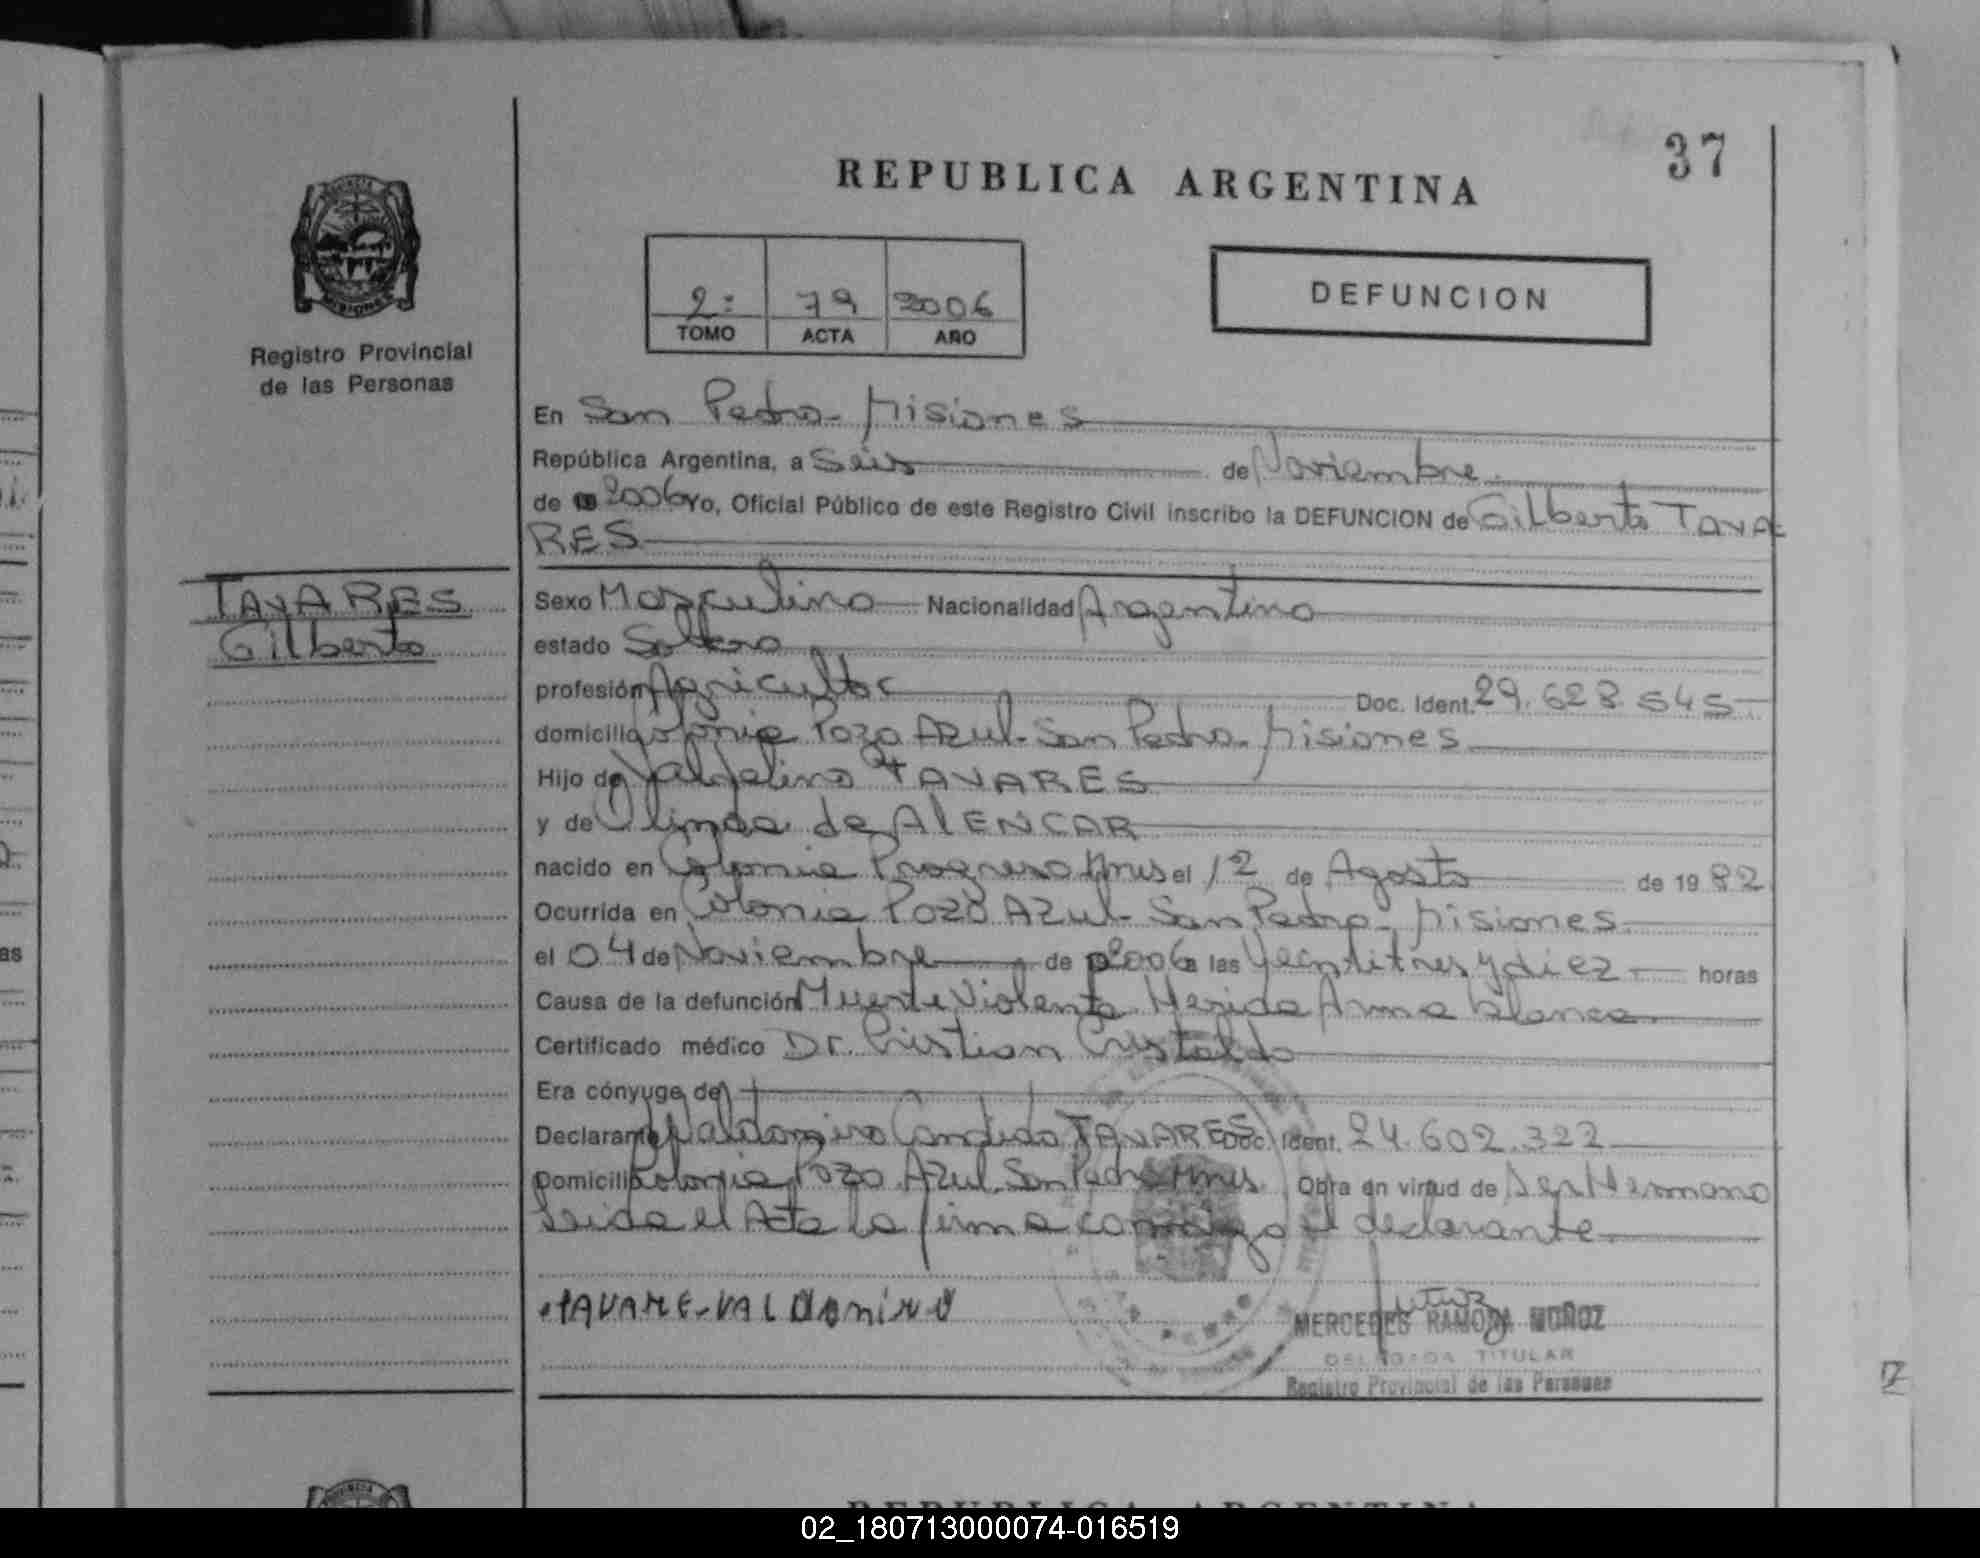 37
REPUBLICA ARGENTINA
PROVINCIA
MISIONES
Registro Provincial
de las Personas
2: 79 2006
TOMO ACTA AÑO
DEFUNCION
En San Pedro - Misiones
República Argentina, a Seis de Noviembre
de 2006 Yo, Oficial Público de este Registro Civil inscribo la DEFUNCION de Gilberto TAVA
RES
TAVARES
Gilberto
Sexo Masculino Nacionalidad Argentino
estado Soltero
profesión Agricultor Doc. Ident. 29.628.545
domicilio Colonia Pozo Azul - San Pedro - Misiones
Hijo de TAVARES
y de Olinda de AlENCAR
nacido en Colonia Progreso Mnes el 12 de Agosto de 1982
Ocurrida en Colonia Pozo Azul - San Pedro - Misiones
el 04 de Noviembre de 2006 a las Veintitres y diez horas
Causa de la defunción Muerte Violenta Herida Arma blanca
Certificado médico Dr. Cristian Cristaldo
Era cónyuge de
Declarante Valdomiro Candido TAVARES Doc. Ident. 24.602.322
Domicilio Colonia Pozo Azul San Pedro Mnes. Obra en virtud de Ser Hermano
Leida el Acta la firma conmigo el declarante
TAVARE-VALDOMIRO
MERCEDES RAMONA MUÑOZ
DELEGADA TITULAR
Registro Provincial de las Personas
REPUBLICA ARGENTINA
02_180713000074-016519